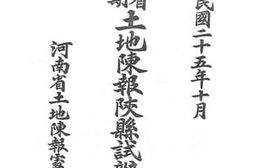 民國二十五年十月
省
期
土地陳報陝縣試辦
河南省土地陳報